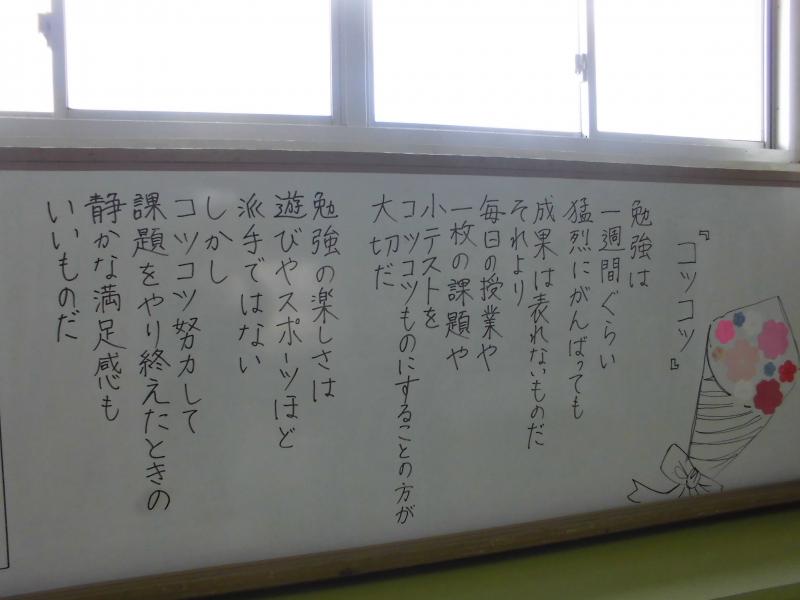 『コツコツ』
勉強は
一週間ぐらい
猛烈にがんばっても
成果は表れないものだ
それより
毎日の授業や
一枚の課題や
小テストを
コツコツものにすることの方が
大切だ
勉強の楽しさは
遊びやスポーツほど
派手ではない
しかし
コツコツ努力して
課題をやり終えたときの
静かな満足感も
いいものだ